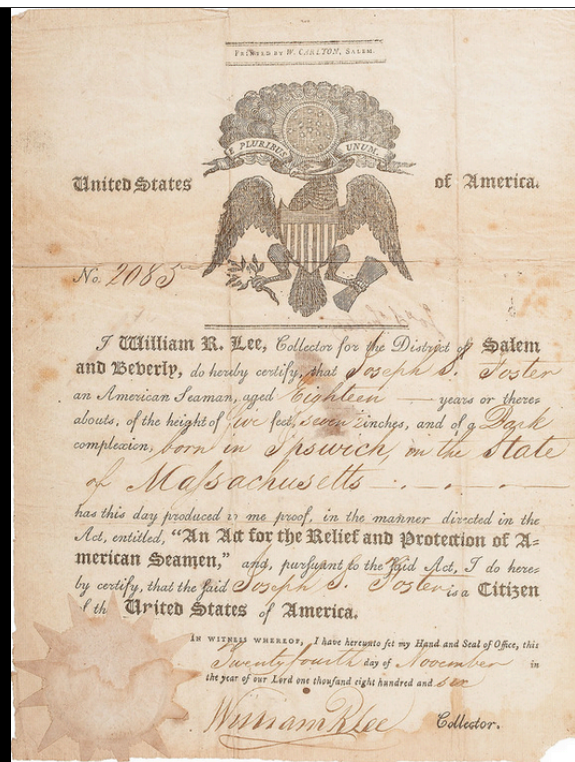 PRINTED BY W. CARLTON, SALEM.
E PLURIBUS UNUM.
United States of America.
No. 2085
I William R. Lee, Collector for the District of Salem
and Beverly, do hereby certify, that Joseph S. Foster
an American Seaman, aged Eighteen — years or there-
abouts, of the height of five feet, seven inches, and of a Dark
complexion, born in Ipswich, in the State
of Massachusetts
has this day produced to me proof, in the manner directed in the
Act, entitled, “An Act for the Relief and Protection of A-
merican Seamen,” and, pursuant to the said Act, I do here-
by certify, that the said Joseph S. Foster is a Citizen
of the United States of America.
IN WITNESS WHEREOF, I have hereunto set my Hand and Seal of Office, this
Twenty fourth day of November in
the year of our Lord one thousand eight hundred and six
William R Lee Collector.